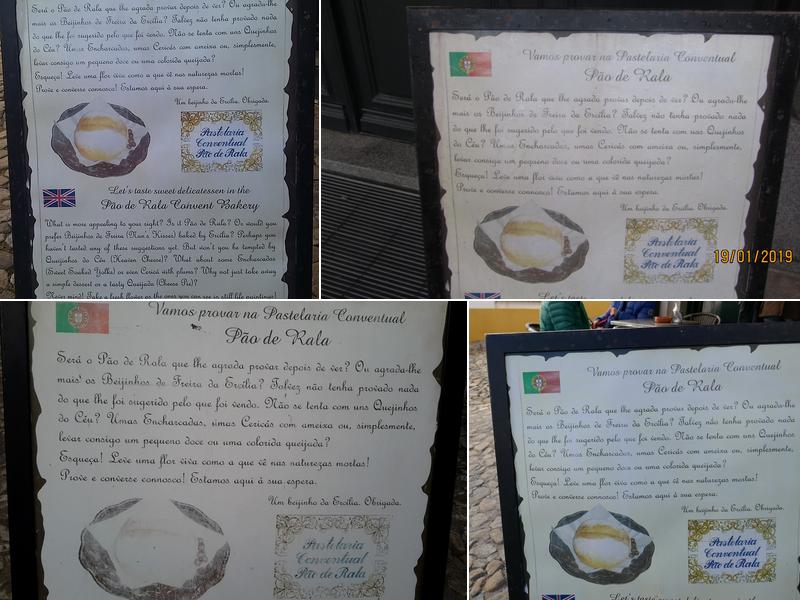 Será o Pão de Rala que lhe agrada provar depois de ver? Ou agrada-lhe
mais os Beijinhos de Freira da Ercília? Talvez não tenha provado nada
do que lhe foi sugerido pelo que foi vendo. Não se tenta com uns Queijinhos
do Céu? Umas Encharcadas, umas Cericás com ameixa ou, simplesmente,
levar consigo um pequeno doce ou uma colorida queijada?
Esqueça! Leve uma flor viva como a que vê nas naturezas mortas!
Prove e converse connosco! Estamos aqui à sua espera.
Um beijinho da Ercília. Obrigada.
Pastelaria
Conventual
Pão de Rala
Let's taste sweet delicatessen in the
Pão de Rala Convent Bakery
What is more appealing to your sight? Is it Pão de Rala? Or would you
prefer Beijinhos de Freira (Nun's Kisses) baked by Ercília? Perhaps you
haven't tasted any of these suggestions yet. But won't you be tempted by
Queijinhos do Céu (Heaven Cheese)? What about some Encharcadas
(Sweet Soaked Yolks) or even Cericá with plums? Why not just take away
a simple dessert or a tasty Queijada (Cheese Pie)?
Never mind! Take a fresh flower as the ones you can see in still life paintings!
Vamos provar na Pastelaria Conventual
Pão de Rala
Será o Pão de Rala que lhe agrada provar depois de ver? Ou agrada-lhe
mais os Beijinhos de Freira da Ercília? Talvez não tenha provado nada
do que lhe foi sugerido pelo que foi vendo. Não se tenta com uns Queijinhos
do Céu? Umas Encharcadas, umas Cericás com ameixa ou, simplesmente,
levar consigo um pequeno doce ou uma colorida queijada?
Esqueça! Leve uma flor viva como a que vê nas naturezas mortas!
Prove e converse connosco! Estamos aqui à sua espera.
Um beijinho da Ercília. Obrigada.
Pastelaria
Conventual
Pão de Rala
19/01/2019
Let's taste
Vamos provar na Pastelaria Conventual
Pão de Rala
Será o Pão de Rala que lhe agrada provar depois de ver? Ou agrada-lhe
mais os Beijinhos de Freira da Ercília? Talvez não tenha provado nada
do que lhe foi sugerido pelo que foi vendo. Não se tenta com uns Queijinhos
do Céu? Umas Encharcadas, umas Cericás com ameixa ou, simplesmente,
levar consigo um pequeno doce ou uma colorida queijada?
Esqueça! Leve uma flor viva como a que vê nas naturezas mortas!
Prove e converse connosco! Estamos aqui à sua espera.
Um beijinho da Ercília. Obrigada.
Pastelaria
Conventual
Pão de Rala
Vamos provar na Pastelaria Conventual
Pão de Rala
Será o Pão de Rala que lhe agrada provar depois de ver? Ou agrada-lhe
mais os Beijinhos de Freira da Ercília? Talvez não tenha provado nada
do que lhe foi sugerido pelo que foi vendo. Não se tenta com uns Queijinhos
do Céu? Umas Encharcadas, umas Cericás com ameixa ou, simplesmente,
levar consigo um pequeno doce ou uma colorida queijada?
Esqueça! Leve uma flor viva como a que vê nas naturezas mortas!
Prove e converse connosco! Estamos aqui à sua espera.
Um beijinho da Ercília. Obrigada.
Pastelaria
Conventual
Pão de Rala
Let's taste sweet delicatessen in the